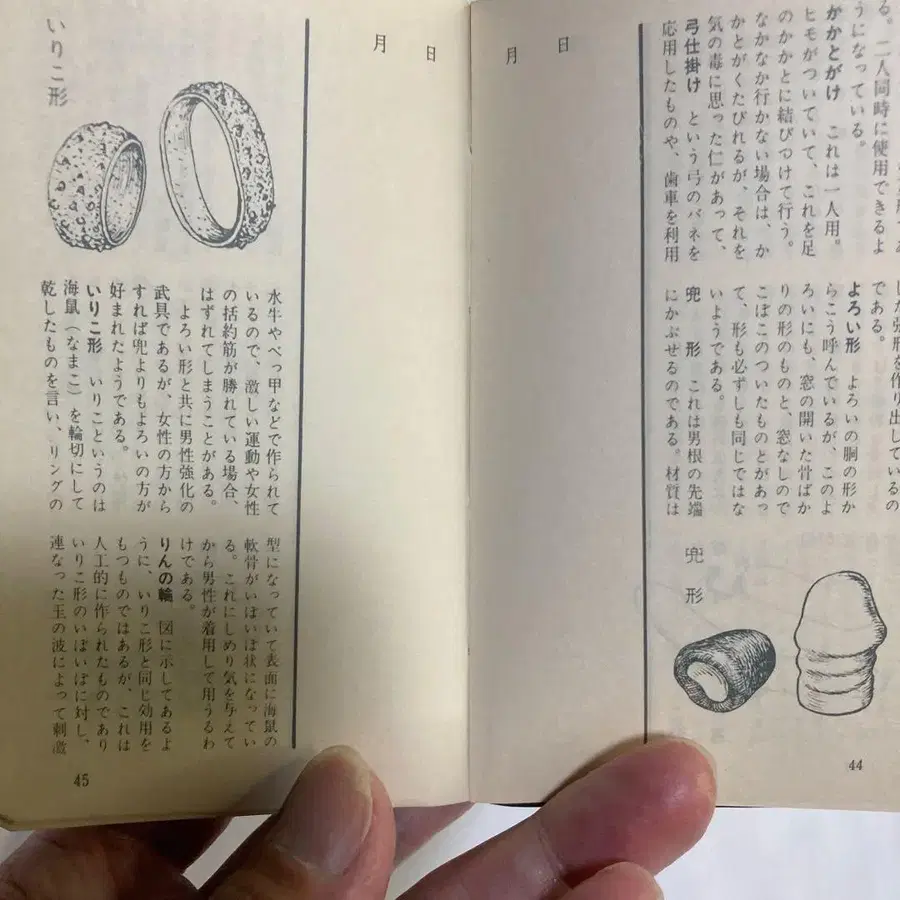 る。二人同時に使用できるよ
うになっている。
かかとがけ　これは一人用。
ヒモがついていて、これを足
のかかとに結びつけて行う。
なかなか行かない場合は、か
かとがくたびれるが、それを
気の毒に思った仁があって、
弓仕掛け　という弓のバネを
応用したものや、歯車を利用
した張形を作り出しているの
である。
よろい形　よろいの胴の形か
らこう呼んでいるが、このよ
ろいにも、窓の開いた骨ばか
りの形のものと、窓なしので
こぼこのついたものとがあっ
て、形も必ずしも同じではな
いようである。
兜　形　これは男根の先端
にかぶせるのである。材質は
兜　形
44
月　日
月　日
いりこ形
水牛やべっ甲などで作られて
いるので、激しい運動や女性
の括約筋が勝れている場合、
はずれてしまうことがある。
よろい形と共に男性強化の
武具であるが、女性の方から
すれば兜よりもよろいの方が
好まれたようである。
いりこ形　いりこというのは
海鼠（なまこ）を輪切にして
乾したものを言い、リングの
型になっていて表面に海鼠の
軟骨がいぼいぼ状になってい
る。これにしめり気を与えて
から男性が着用して用うるわ
けである。
りんの輪　図に示してあるよ
うに、いりこ形と同じ効用を
もつものではあるが、これは
人工的に作られたものであり
いりこ形のいぼいぼに対し、
連なった玉の波によって刺激
45